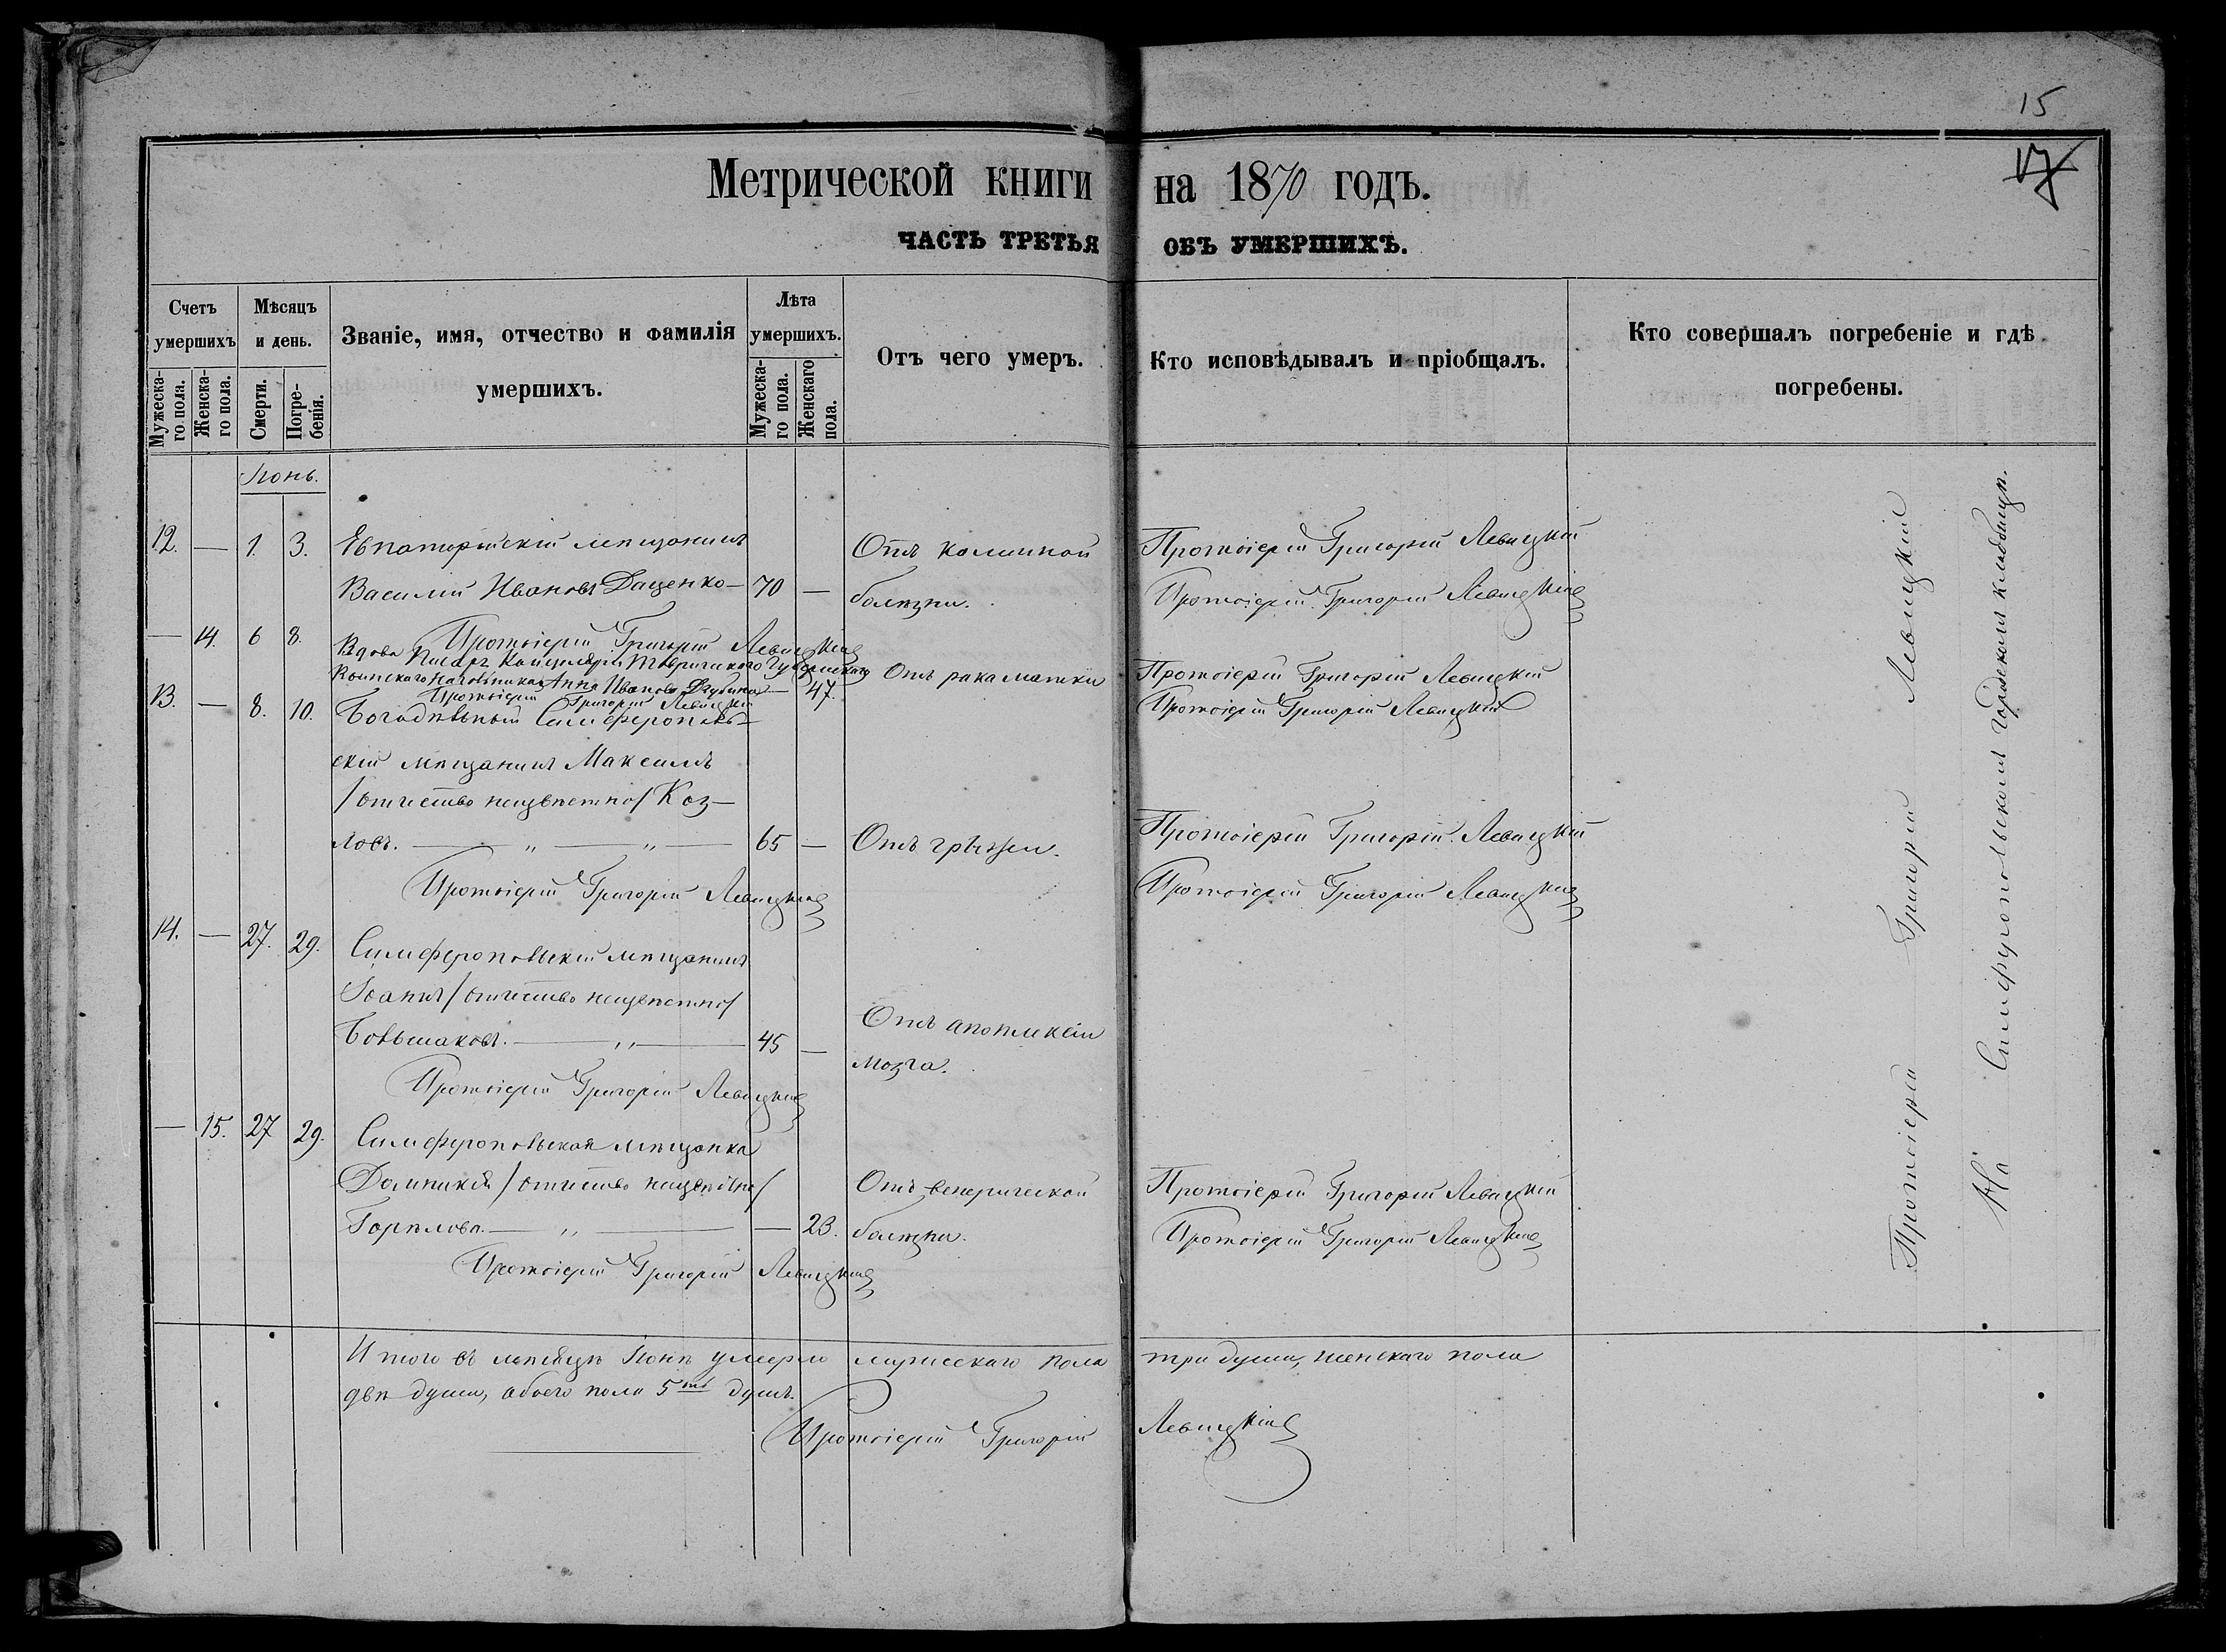 15
17
Метрической книги на 1870 годъ.
ЧАСТЬ ТРЕТЬЯ ОБЪ УМЕРШИХЪ.
Счетъ умершихъ
Мужеска-го пола.
Женска-го пола.
Мѣсяцъ и день.
Смерти.
Погре-бенія.
Званіе, имя, отчество и фамилія умершихъ.
Лѣта умершихъ.
Мужеска-го пола.
Женскаго пола.
Отъ чего умеръ.
Кто исповѣдывалъ и пріобщалъ.
Кто совершалъ погребеніе и гдѣ погребены.
Іюнь.
12. — 1. 3. Евпаторійскій мѣщанинъ Отъ каминной Протоіерей Григорій Левицкій
Василій Ивановъ Даценко — 70 — болѣзни. Протоіерей Григорій Левицкій
Протоіерей Григорій Левицкій
— 14. 6 8. Вдова Писаря Канцеляріи Таврическаго Губернскаго
Воинскаго Начальника Анна Иванова — 47. Отъ рака матки Протоіерей Григорій Левицкій
Протоіерей Григорій Левицкій Протоіерей Григорій Левицкій
13. — 8. 10. Богадѣльный Симферополь-
скій мѣщанинъ Максимъ
/отчество неизвѣстно/ Коз-
ловъ. — „ — „ — 65 — Отъ грыжи. Протоіерей Григорій Левицкій
Протоіерей Григорій Левицкій Протоіерей Григорій Левицкій
14. — 27. 29. Симферопольскій мѣщанинъ
Іоаннъ /отчество неизвѣстно/
Большаковъ. — „ — 45 — Отъ апоплексіи
мозга.
Протоіерей Григорій Левицкій
— 15. 27 29. Симферопольская мѣщанка
Домникія /отчество неизвѣстно/ Отъ венерической Протоіерей Григорій Левицкій
Горѣлова. — „ — — 23. болѣзни. Протоіерей Григорій Левицкій
Протоіерей Григорій Левицкій
Протоіерей Григорій Левицкій
На Симферопольскомъ городскомъ кладбищѣ.
Итого въ мѣсяцѣ Іюнѣ умерло мужескаго пола три души, женскаго пола
двѣ души, обоего пола 5ть душъ.
Протоіерей Григорій Левицкій